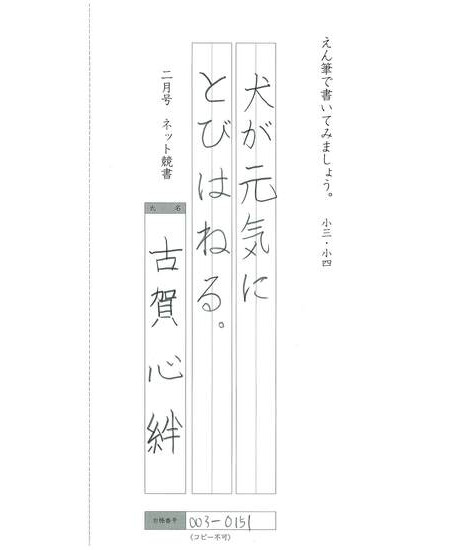 えん筆で書いてみましょう。 小三・小四
犬が元気に
とびはねる。
二月号 ネット競書
氏 名
古賀 心絆
会員番号 003-0151
(コピー不可)